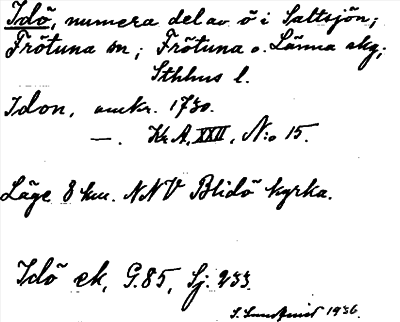 Idö, numera del av ö i Saltsjön;
Frötuna sn; Frötuna o. Länna skg;
Sthlms l.
Idon, omkr. 1730.
—. Kr A, XXII, N:o 15.
Läge 8 km. NNV Blidö kyrka.
Idö ek, G.85, Sj. 233.
1936.